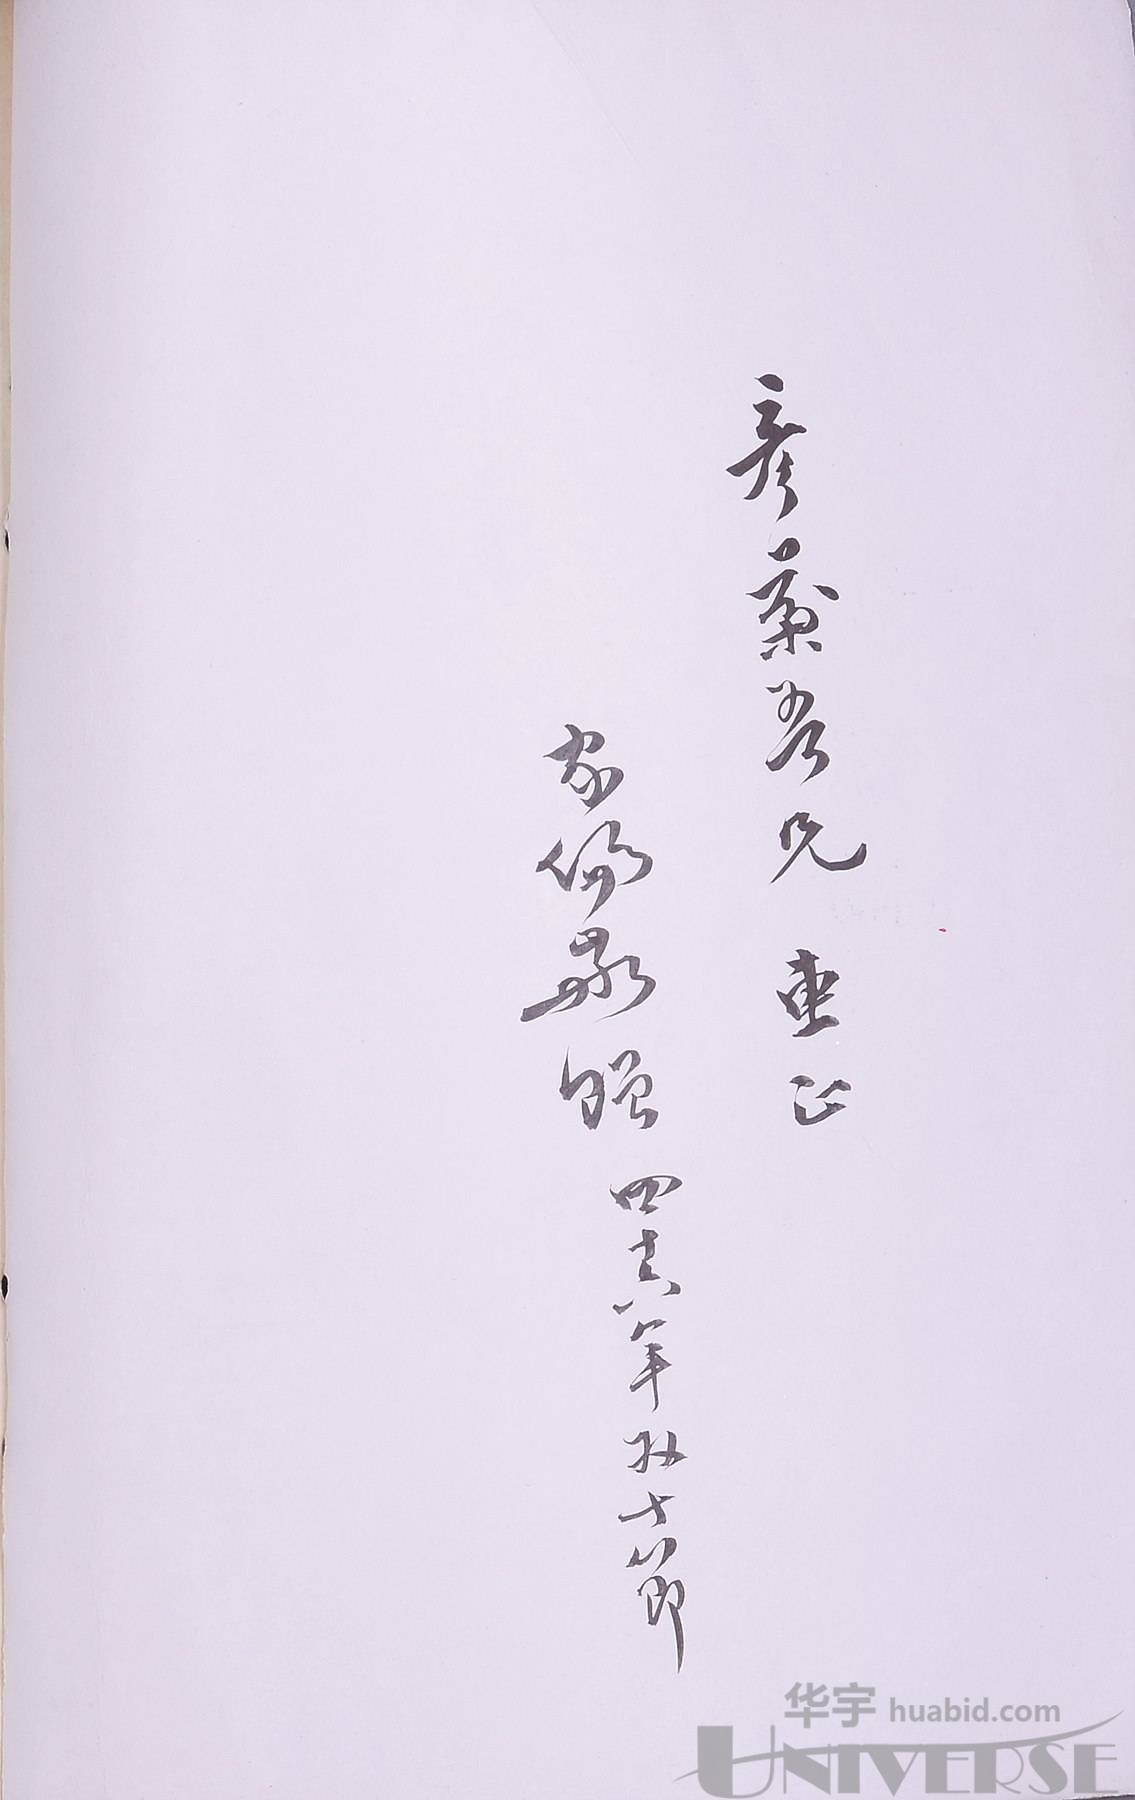 彥棻吾兄 惠正
家倫敬贈 四十六年双十節
华宇 huabid.com
UNIVERSE